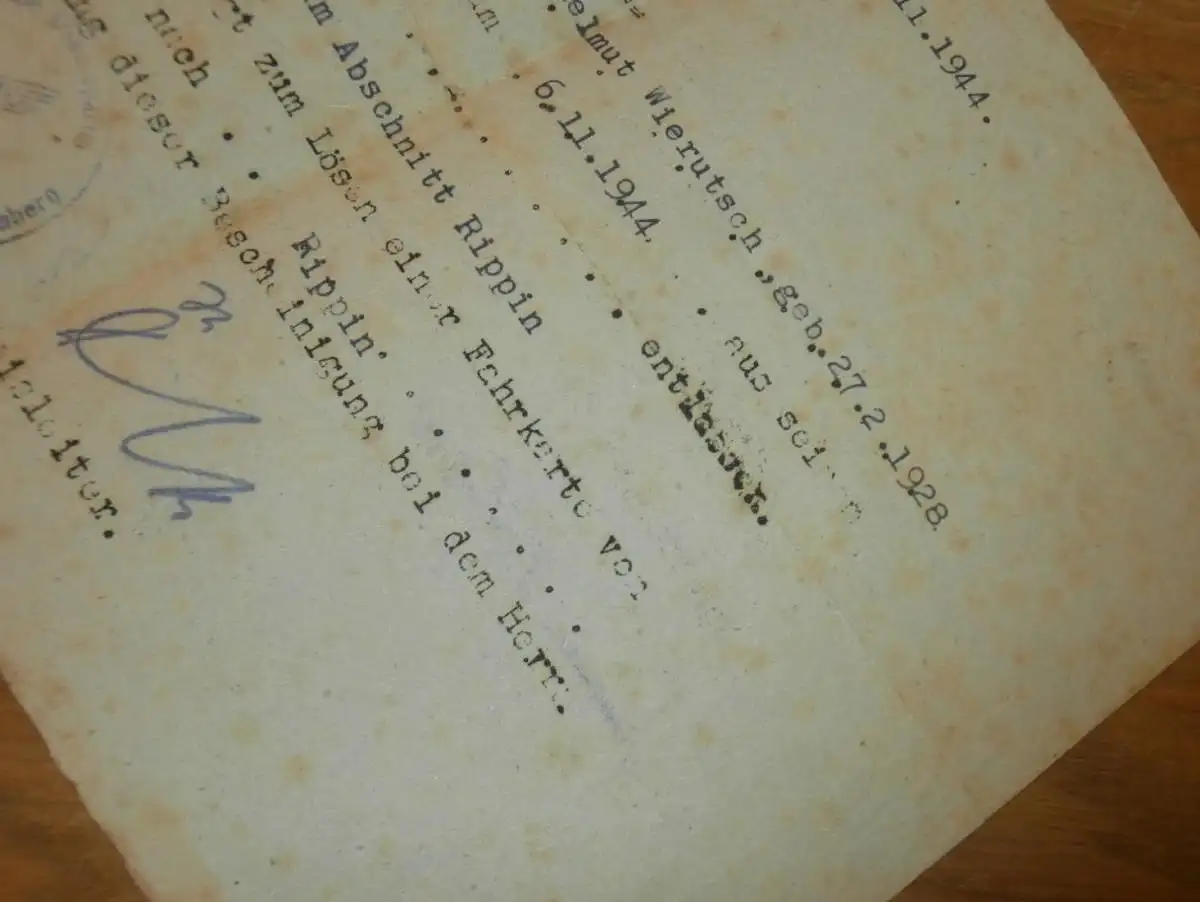 11.1944.
elmut Wierutsch „geb.27.2.1928.
6.11.1944. . . aus seinem
. . . . . . . . . entlassen.
m Abschnitt Rippin
rt zum Lösen einer Fahrkarte von
nach . . Rippin. . . . . . . . .
dieser Bescheinigung bei dem Herrn
leiter.